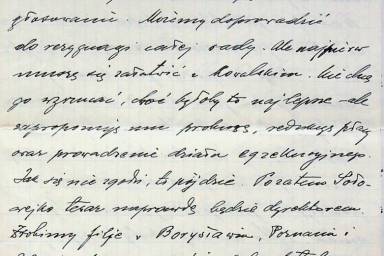 głosowanie. Możemy doprowadzić
do rezygnacji całej rady. Ale najpierw
muszę się załatwić z Kowalskim. Nie chcę
go wyrzucać, choć byłoby to najlepsze - ale
zaproponuję mu prokurę, redukcję płacy
oraz prowadzenie działu egzekucyjnego.
Jak się nie zgodzi, to pójdzie. Pozatem Soło-
wejko teraz naprawdę będzie dyrektorem.
Zrobimy filje w Borysławiu, Poznaniu i